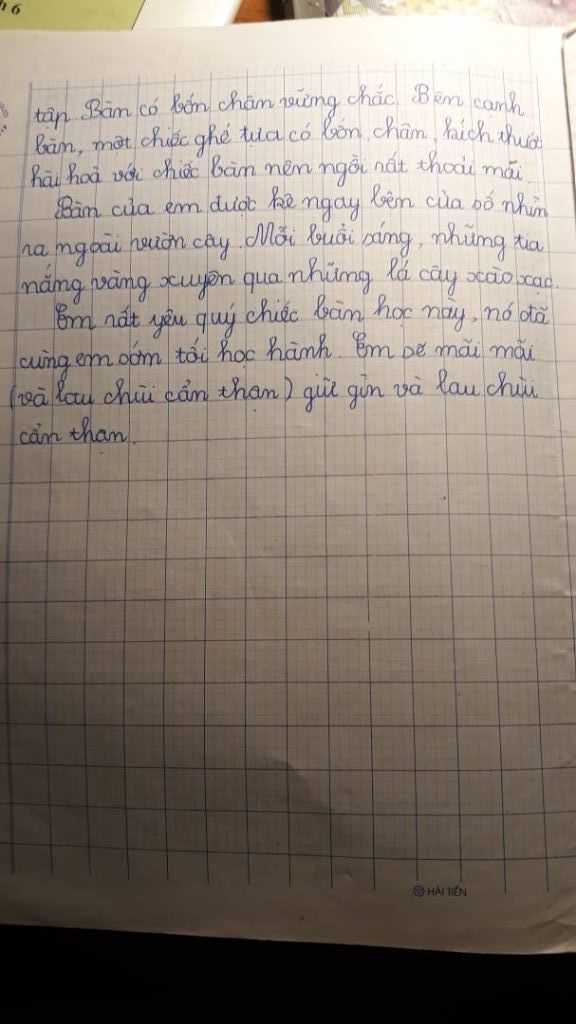 h 6
tập. Bàn có bốn chân vững chắc. Bên cạnh
bàn, một chiếc ghế tựa có bốn chân, kích thướ
hài hoà với chiếc bàn nên ngồi nất thoải mái.
Bàn của em được kê ngay bên cửa sổ nhìn
na ngoài vườn cây. Mỗi buổi sáng, những tia
nắng vàng xuyên qua những lá cây xào xạc.
Em nất yêu quý chiếc bàn học này, nó đã
cùng em sớm tối học hành. Em sẽ mãi mãi
(và lau chùi cẩn thạn) giữ gìn và lau chùi
cẩn thạn.
HẢI TIẾN